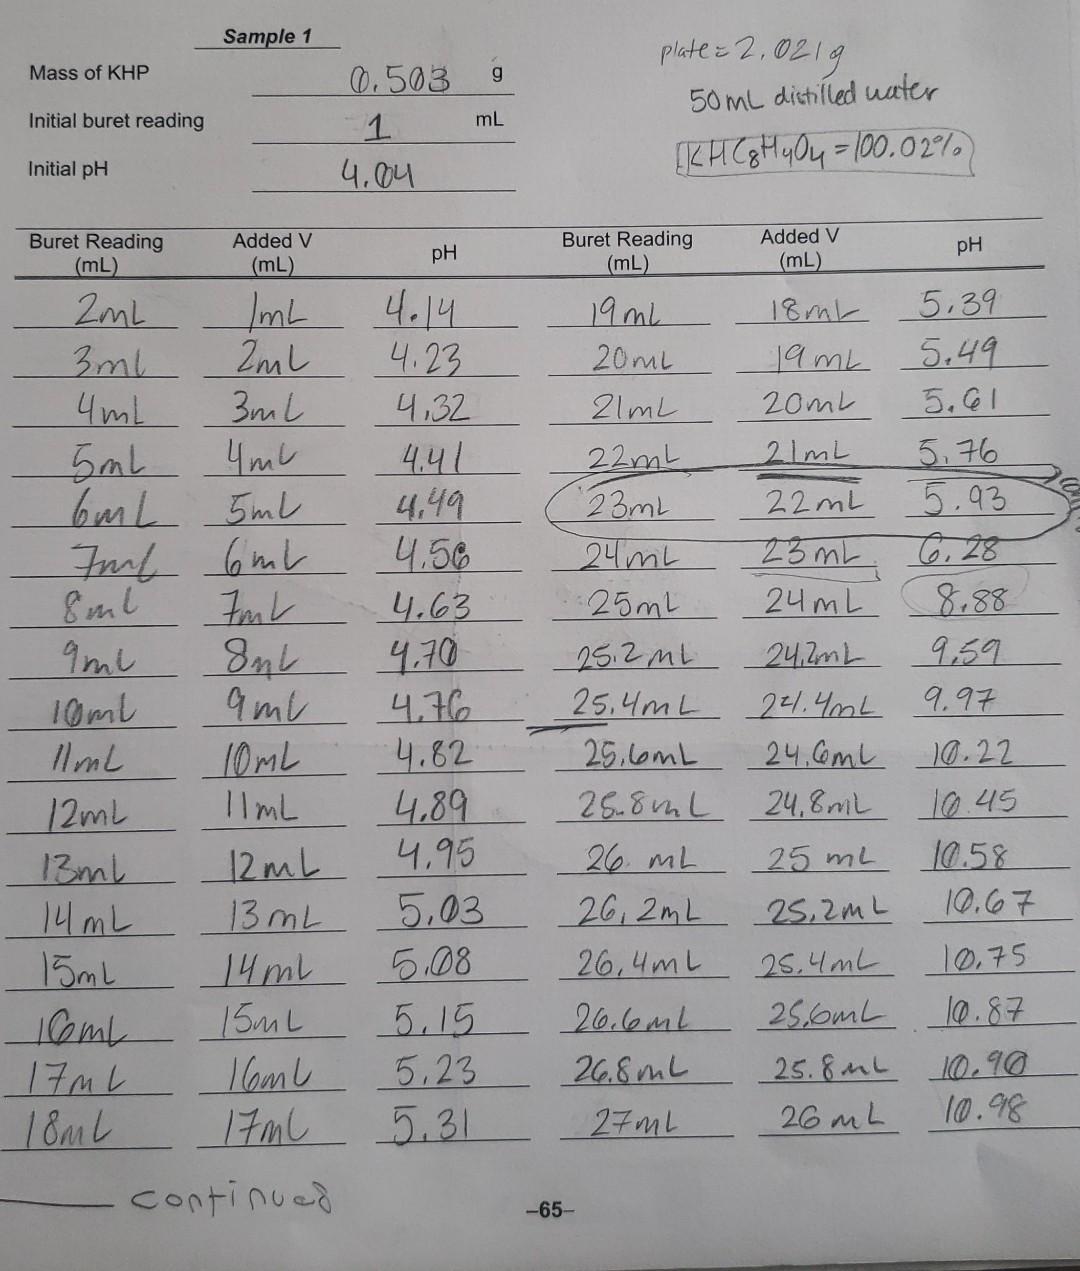 Sample 1
plate = 2.021g
Mass of KHP 0.503 g
50mL distilled water
Initial buret reading 1 mL
KHC8H4O4 = 100.02%
Initial pH 4.04
Buret Reading (mL) Added V (mL) pH Buret Reading (mL) Added V (mL) pH
2mL 1mL 4.14 19mL 18mL 5.39
3mL 2mL 4.23 20mL 19mL 5.49
4mL 3mL 4.32 21mL 20mL 5.61
5mL 4mL 4.41 22mL 21mL 5.76
6mL 5mL 4.49 23mL 22mL 5.93
7mL 6mL 4.56 24mL 23mL 6.28
8mL 7mL 4.63 25mL 24mL 8.88
9mL 8mL 4.70 25.2mL 24.2mL 9.59
10mL 9mL 4.76 25.4mL 24.4mL 9.97
11mL 10mL 4.82 25.6mL 24.6mL 10.22
12mL 11mL 4.89 25.8mL 24.8mL 10.45
13mL 12mL 4.95 26. mL 25mL 10.58
14mL 13mL 5.03 26.2mL 25.2mL 10.67
15mL 14mL 5.08 26.4mL 25.4mL 10.75
16mL 15mL 5.15 26.6mL 25.6mL 10.87
17mL 16mL 5.23 26.8mL 25.8mL 10.90
18mL 17mL 5.31 27mL 26mL 10.98
continued
–65–